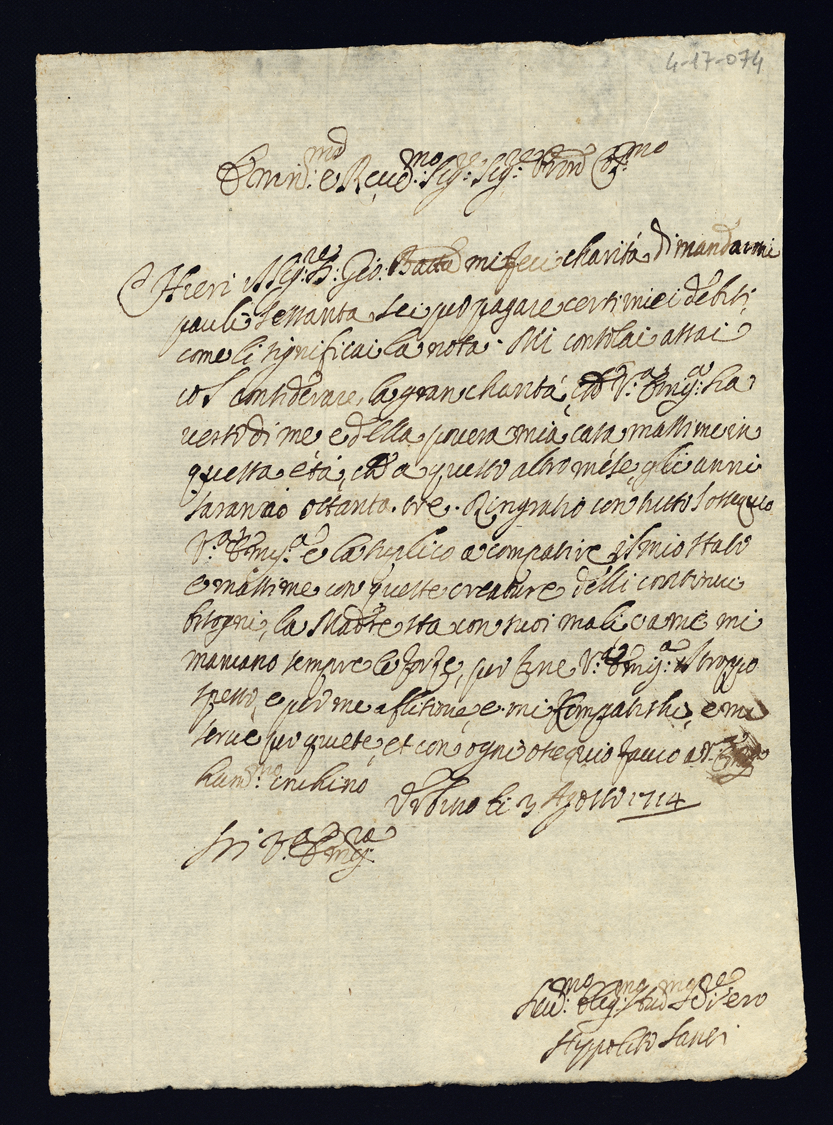 4-17-074
Emin.mo e Reud.mo Sig.re Sig.re Pron Col.mo
Hieri il Sig.re D. Gio. Batta mi feci charità di mandarmi
pauli settanta sei per pagare certi miei debiti
come li significai la nota. Mi consolai assai
col considerare la gran charità, che V.a Em.a ha
verso di me e della povera mia casa massime in
questa età, che a questo altro mese gli anni
saranno ottanta tre. Ringratio con tutto l'ossequio
V.a Em.a e la suplico a compatire il mio stato
e massime con queste creature delli continui
bisogni, la Madre sta con suoi mali, e a me mi
mancano sempre le forze, per V.a Em.a troppo
spesso, e per me aflitione, e mi compatischi, e mi
serve per quiete, et con ogni osequio faccio a V.a Em.a
hum.mo inchino
Urbino li 3 Agosto 1714
Di V.a Em.za
Hyppolito